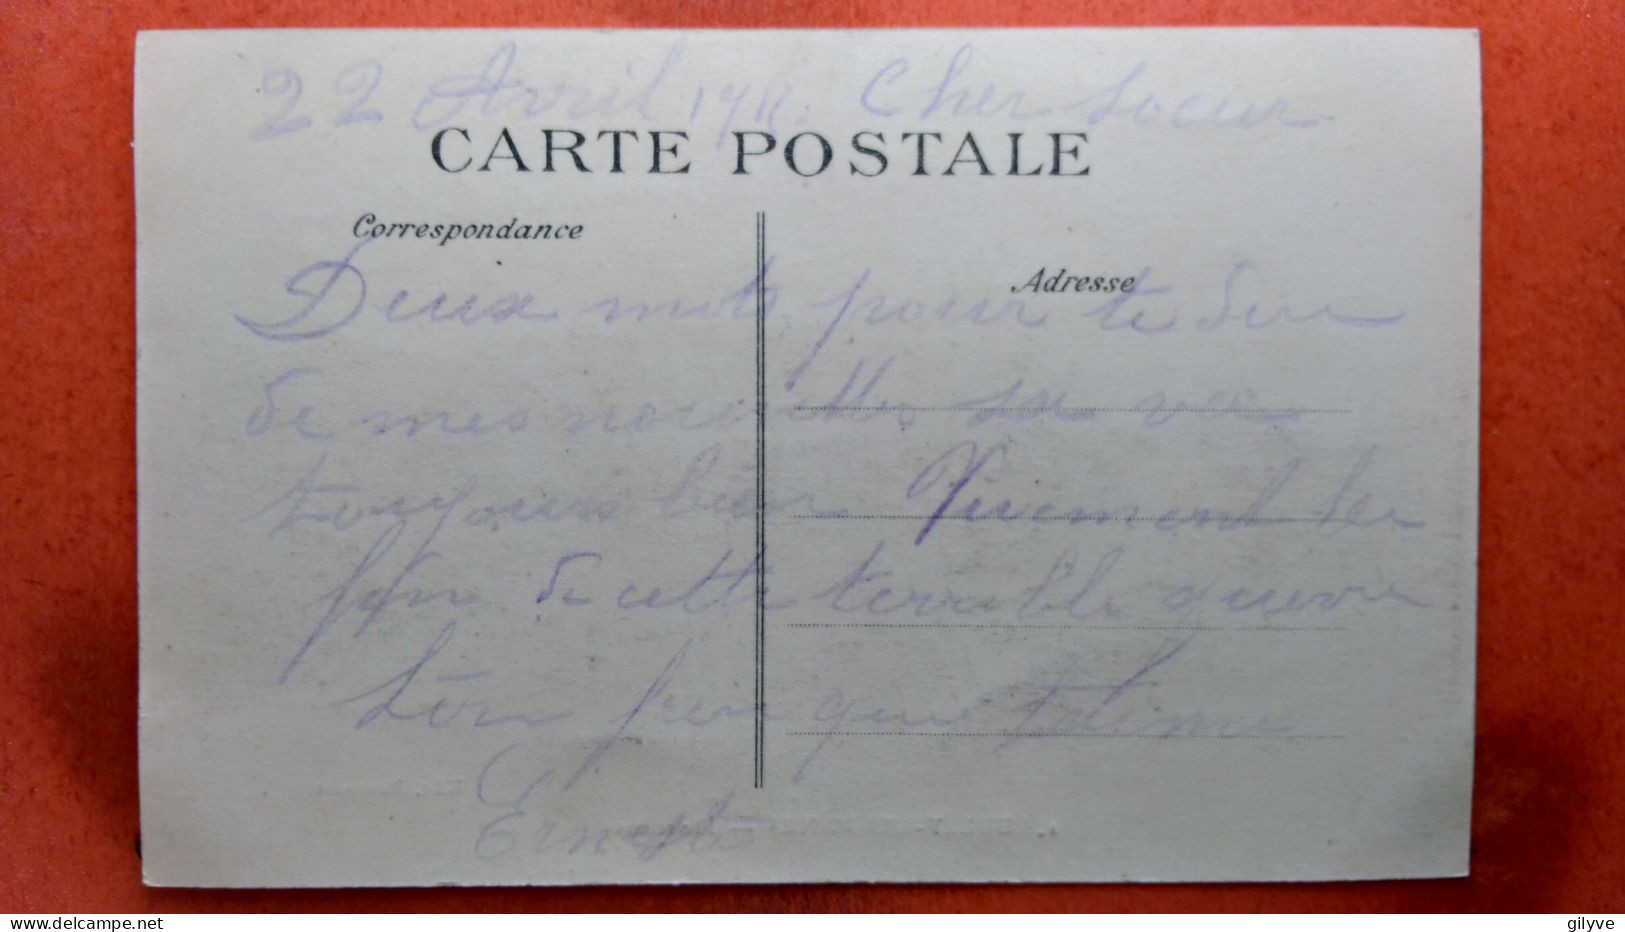 22 Avril Cher Soeur
CARTE POSTALE
Correspondance
Adresse
Deux mots pour te
de mes nouvelles va
toujours bien Vivement la
fin de cette terrible guerre
Ton qui t'aime
Ernest
gilyve